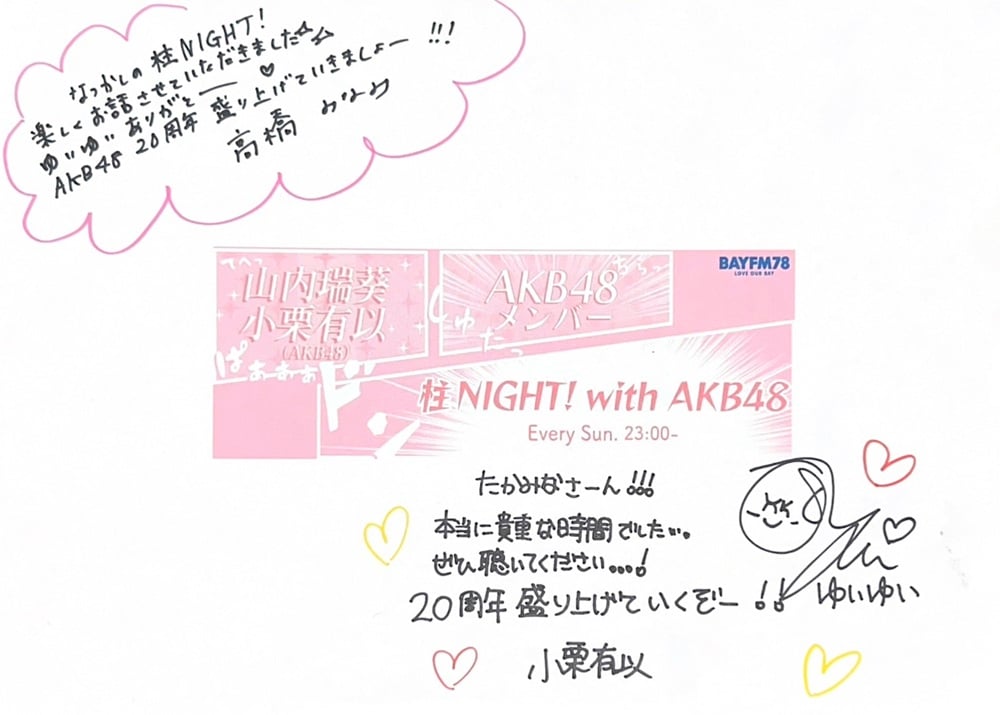 なつかしの 柱NIGHT!
楽しくお話させていただきました☆☆
ゆいゆい ありがとー♡
AKB48 20周年 盛り上げていきましょー!!!
高橋 みなみ
てへっ
山内瑞葵
小栗有以
(AKB48)
ぱぁぁぁぁ
AKB48
メンバー
ちらっ
しゅたっ
BAYFM78
LOVE OUR BAY
ドン
柱NIGHT! with AKB48
Every Sun. 23:00-
たかみなさーん!!!
本当に貴重な時間でした…。
ぜひ聴いてください…!
20周年 盛り上げていくぞー!!
ゆいゆい
小栗有以